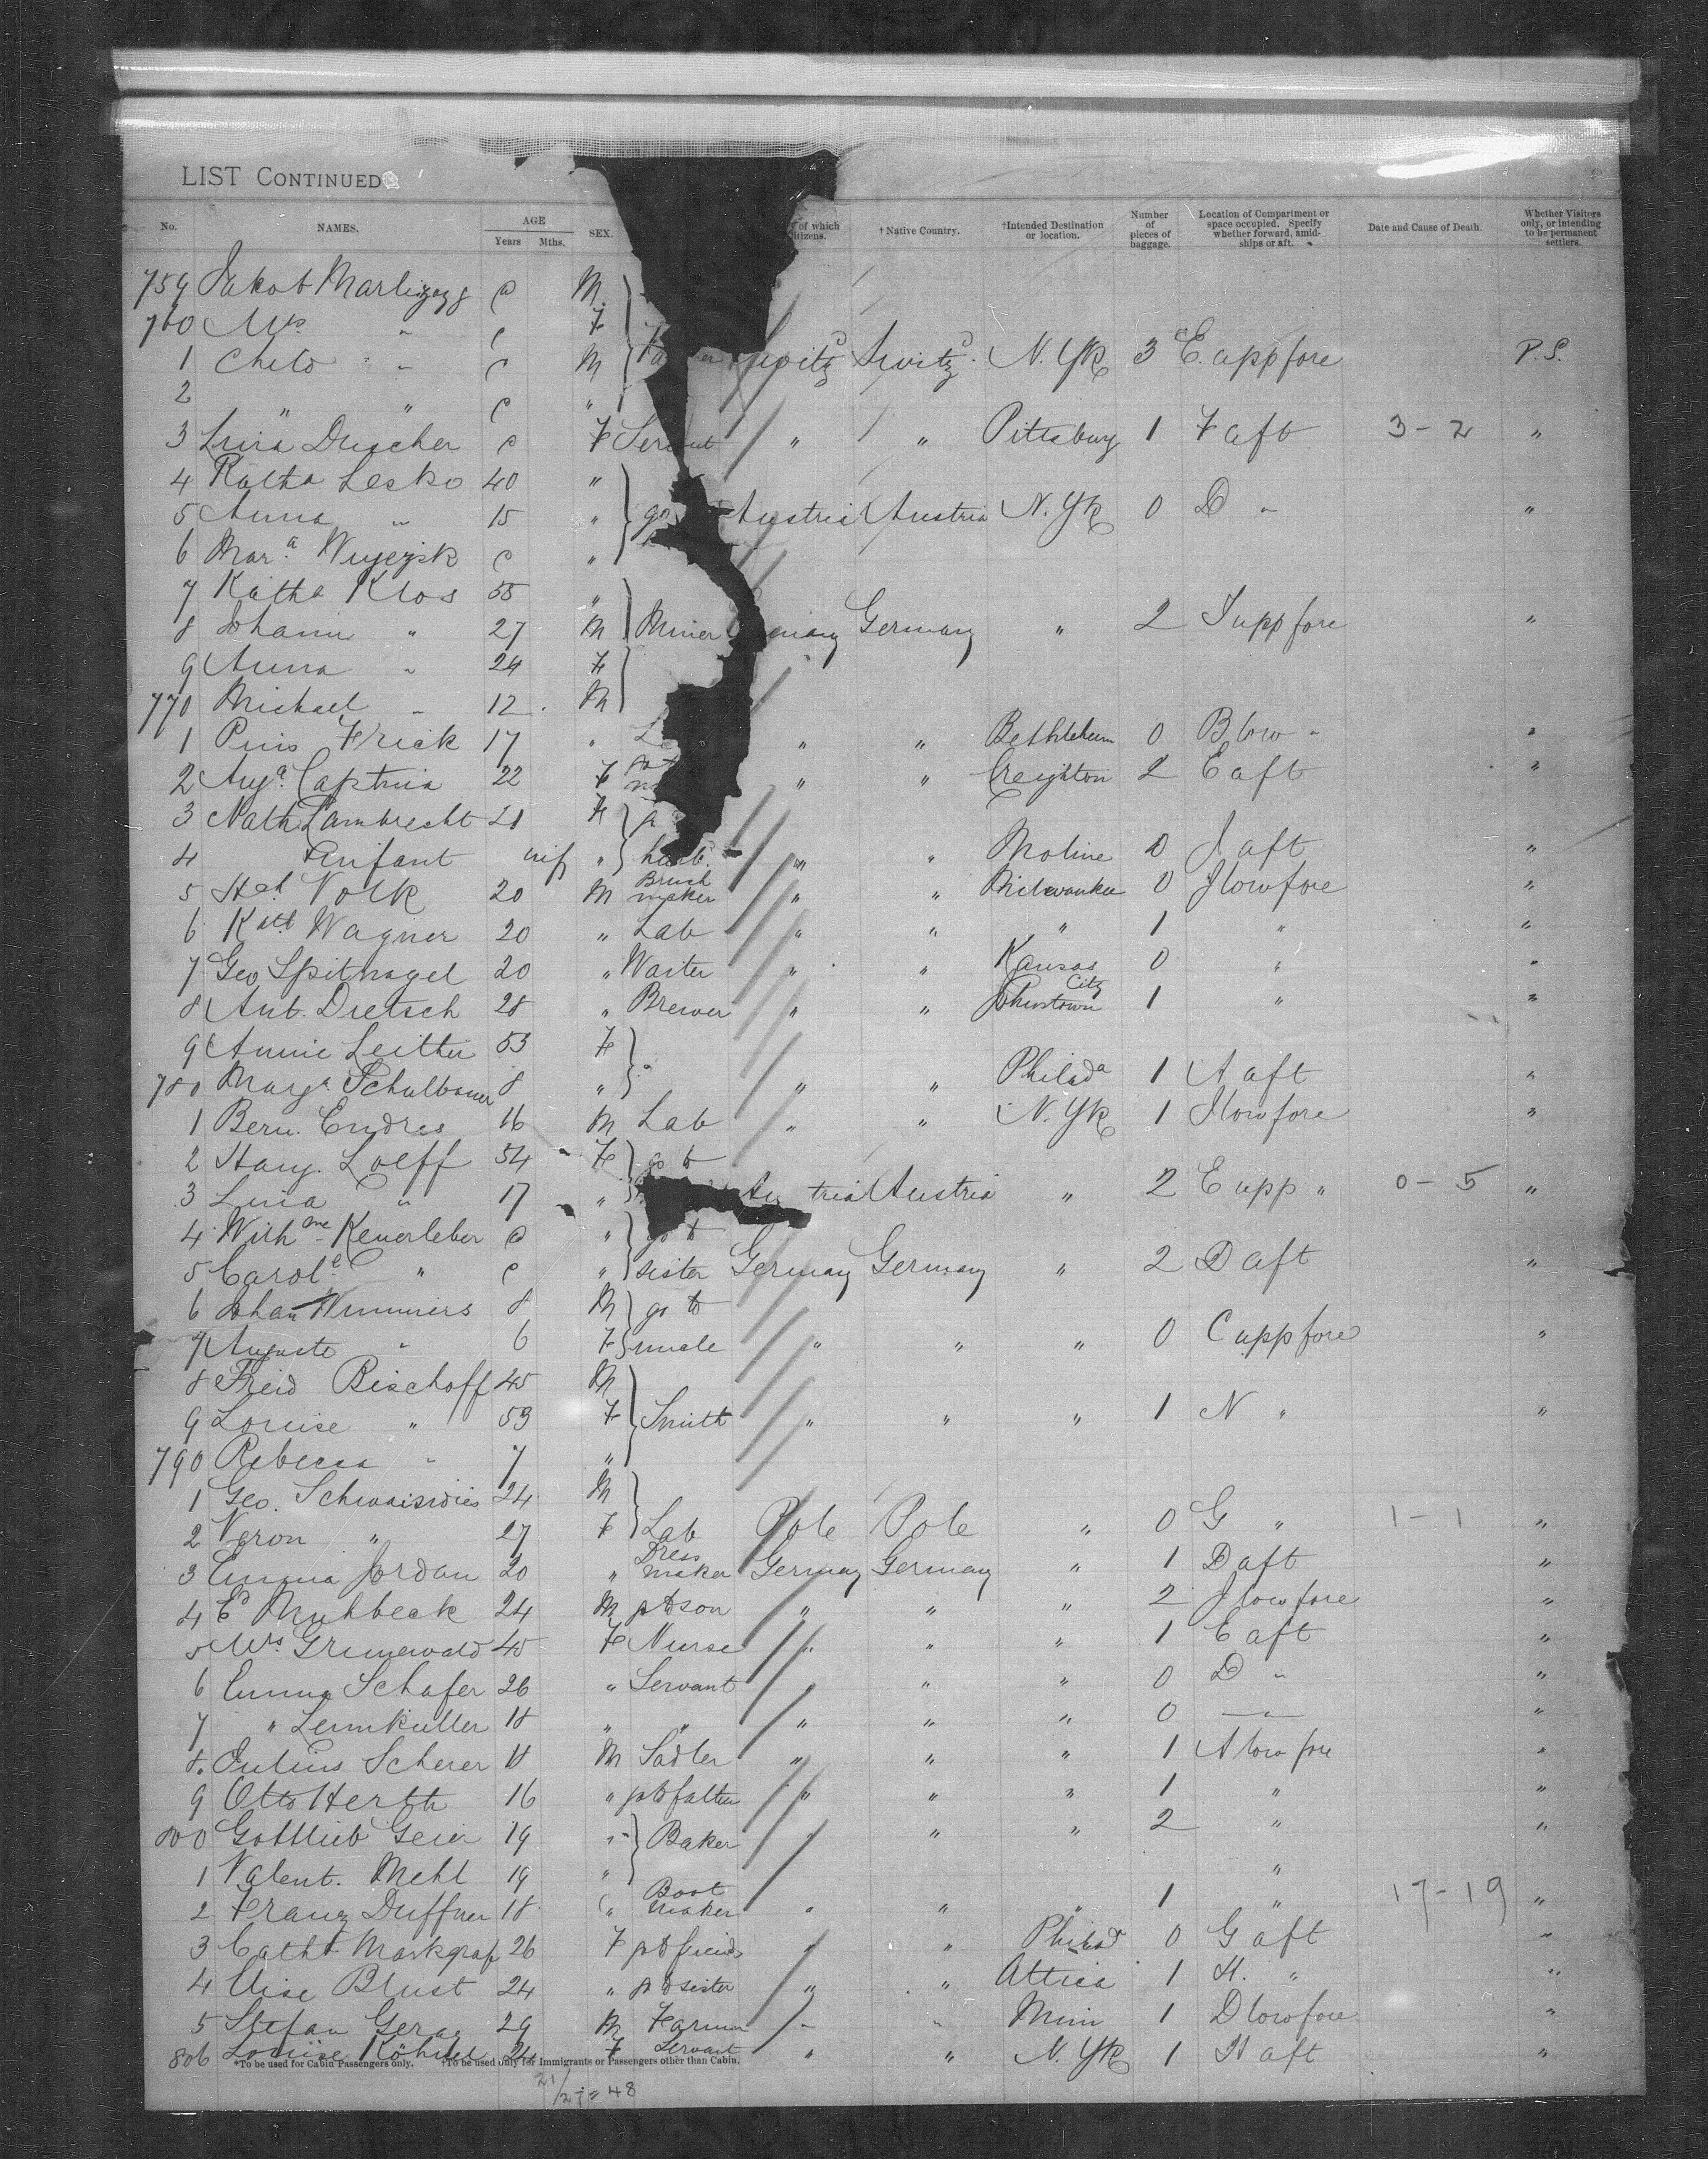 LIST CONTINUED
No. NAMES. AGE Years Mths. SEX. of which citizens. †Native Country. †Intended Destination or location. Number of pieces of baggage. Location of Compartment or space occupied. Specify whether forward, amidships or aft. Date and Cause of Death. Whether Visitors only, or intending to be permanent settlers.
759 Jakob c M
760 Mrs " c F
1 Child " " c M Switz Switz N. Yk 3 E. upp fore P.S.
2 " " c "
3 Lina Duscher c F Servant " " Pittsburg 1 F aft 3-2 "
4 Kath a Lesko 40 "
5 Anna " 15 " go Austria Austria N. Yk 0 D " "
6 Mar.a c "
7 Kath a Klos 55 "
8 Johann " 27 M Miner many Germany " 2 J upp fore "
9 Anna " 24 F
770 Michael " 12 M
1 Pius Frick 17 " L " " Bethlehem 0 B low " "
2 Aug.a 22 F " " Creighton 2 E aft "
3 Nath Lambrecht 21 F
4 Infant inf " husb. " " Moline 0 J aft "
5 Volk 20 M Brush maker " " Milwaukee 0 J low fore "
6 Wagner 20 " Lab " " " 1 " "
7 Geo Spitnagel 20 " Waiter " " Kansas City 0 " "
8 Ant. Dietsch 28 " Brewer " " Johnstown 1 " "
9 Annie 53 F
780 Marg. 8 " " " Philada 1 A aft "
1 Bern. Endres 16 M Lab " " N. Yk 1 J low fore "
2 Loeff 54 F go to
3 Lina " 17 " Au tria Austria " 2 E upp " 0-5 "
4 Wilh me Keuerleber c " go to
5 Carol e " c " sister Germany Germany " 2 D aft "
6 Johan Wimmers 8 M go to
7 Auguste " 6 F uncle " " " 0 C upp fore "
8 Fried Bischoff 45 M
9 Louise " 53 F Smith " " " 1 N " "
790 Rebecca " 7 "
1 Geo. 24 M
2 Veron " 27 F Lab Pole Pole " 0 G " 1-1 "
3 Emma Jordan 20 " Dress maker Germany Germany " 1 D aft "
4 Ed Muhlbeck 24 M g to son " " " 2 J low fore "
5 Mrs Grunewald 45 F Nurse " " " 1 E aft "
6 Emma Schafer 26 " Servant " " " 0 D " "
7 " 18 " " " " " 0 " "
8. Julius Scherer 18 M Sadler " " " 1 A low fore "
9 Otto Herth 16 " g to father " " " 1 " "
800 Gottlieb Geier 19 " Baker " " " 2 " "
1 Valent. Mehl 19 " "
2 Franz Duffner 18 " Boot maker " " " 1 " 17-19 "
3 Cath a Markgraf 26 F g to friend " " Philad 0 G aft "
4 Elise Blust 24 " g to sister " " Attica 1 H. " "
5 Stefan 29 M Farmer " " Minn 1 D low fore "
806 Louise 24 F Servant " " N. Yk 1 H aft "
*To be used for Cabin Passengers only. †To be used only for Immigrants or Passengers other than Cabin.
21/27 = 48